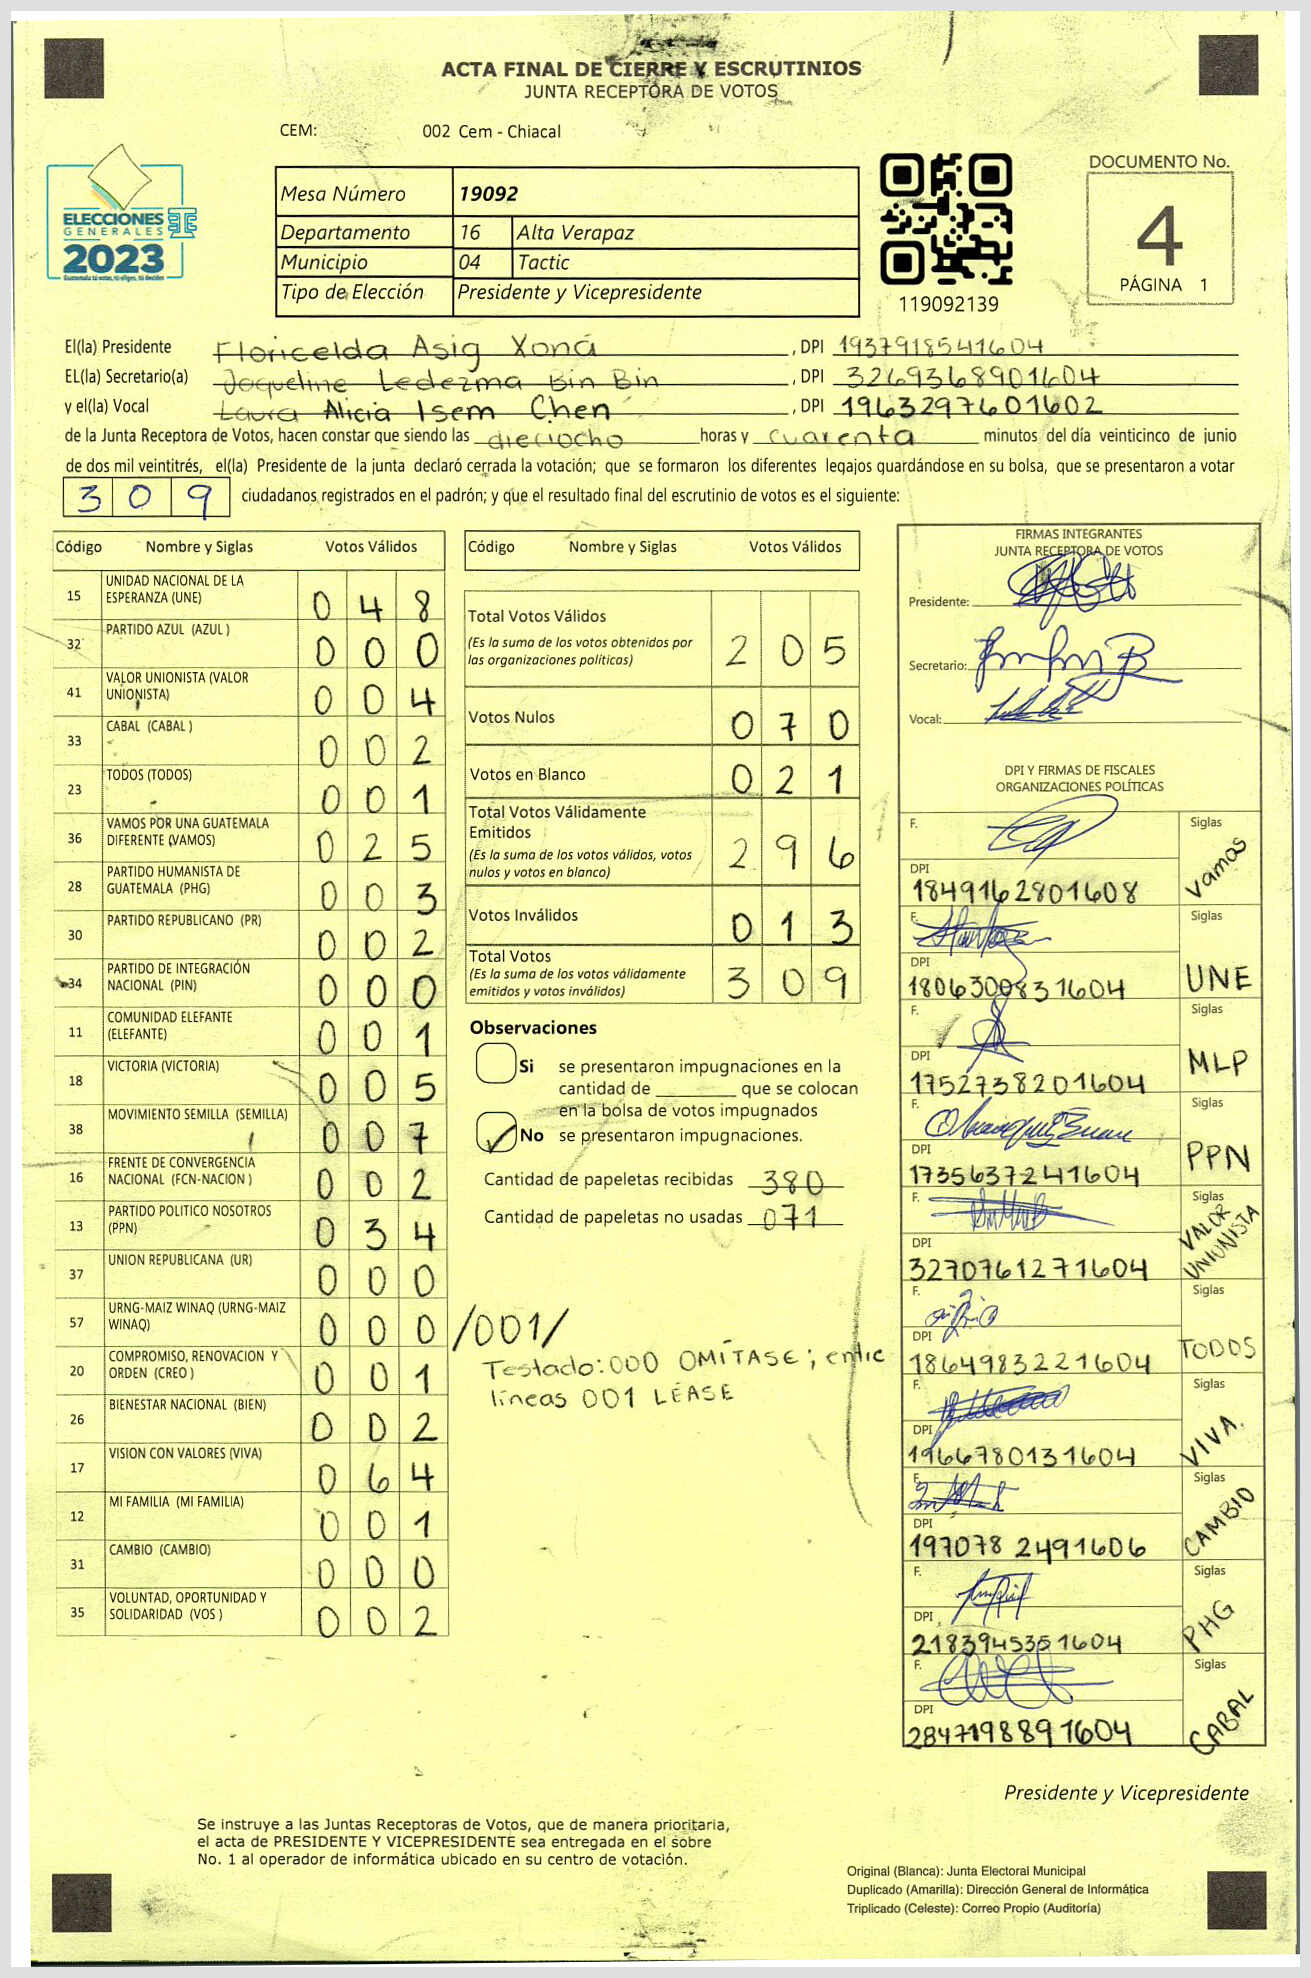 ACTA FINAL DE CIERRE Y ESCRUTINIOS
JUNTA RECEPTORA DE VOTOS
CEM: 002 Cem - Chiacal
ELECCIONES
GENERALES
2023
Mesa Número 19092
Departamento 16 Alta Verapaz
Municipio 04 Tactic
Tipo de Elección Presidente y Vicepresidente
119092139
DOCUMENTO No.
4
PÁGINA 1
El(la) Presidente Floricelda Asig Xoná, DPI 1937918541604
EL(la) Secretario(a) Jaqueline Ledezma Bin Bin, DPI 3269368901604
y el(la) Vocal Laura Alicia Isem Chen, DPI 1963297601602
de la Junta Receptora de Votos, hacen constar que siendo las dieciocho horas y cuarenta minutos del día veinticinco de junio
de dos mil veintitrés, el(la) Presidente de la junta declaró cerrada la votación; que se formaron los diferentes legajos guardándose en su bolsa, que se presentaron a votar
309 ciudadanos registrados en el padrón; y que el resultado final del escrutinio de votos es el siguiente:
Código Nombre y Siglas Votos Válidos
15 UNIDAD NACIONAL DE LA ESPERANZA (UNE) 048
32 PARTIDO AZUL (AZUL ) 000
41 VALOR UNIONISTA (VALOR UNIONISTA) 004
33 CABAL (CABAL ) 002
23 TODOS (TODOS) 001
36 VAMOS POR UNA GUATEMALA DIFERENTE (VAMOS) 025
28 PARTIDO HUMANISTA DE GUATEMALA (PHG) 003
30 PARTIDO REPUBLICANO (PR) 002
34 PARTIDO DE INTEGRACIÓN NACIONAL (PIN) 000
11 COMUNIDAD ELEFANTE (ELEFANTE) 001
18 VICTORIA (VICTORIA) 005
38 MOVIMIENTO SEMILLA (SEMILLA) 007
16 FRENTE DE CONVERGENCIA NACIONAL (FCN-NACION ) 002
13 PARTIDO POLITICO NOSOTROS (PPN) 034
37 UNION REPUBLICANA (UR) 000
57 URNG-MAIZ WINAQ (URNG-MAIZ WINAQ) 000 /001/
20 COMPROMISO, RENOVACION Y ORDEN (CREO ) 001
26 BIENESTAR NACIONAL (BIEN) 002
17 VISION CON VALORES (VIVA) 064
12 MI FAMILIA (MI FAMILIA) 001
31 CAMBIO (CAMBIO) 000
35 VOLUNTAD, OPORTUNIDAD Y SOLIDARIDAD (VOS ) 002
Código Nombre y Siglas Votos Válidos
Total Votos Válidos 205
(Es la suma de los votos obtenidos por
las organizaciones políticas)
Votos Nulos 070
Votos en Blanco 021
Total Votos Válidamente
Emitidos 296
(Es la suma de los votos válidos, votos
nulos y votos en blanco)
Votos Inválidos 013
Total Votos 309
(Es la suma de los votos válidamente
emitidos y votos inválidos)
Observaciones
Si se presentaron impugnaciones en la
cantidad de ________ que se colocan
en la bolsa de votos impugnados
No se presentaron impugnaciones.
Cantidad de papeletas recibidas 380
Cantidad de papeletas no usadas 071
Testado: 000 OMÍTASE; entre
líneas 001 LÉASE
FIRMAS INTEGRANTES
JUNTA RECEPTORA DE VOTOS
Presidente:
Secretario:
Vocal:
DPI Y FIRMAS DE FISCALES
ORGANIZACIONES POLÍTICAS
F. Siglas
DPI 1849162801608 Vamos
F. Siglas
DPI 1806300831604 UNE
F. Siglas
DPI 1752738201604 MLP
F. Siglas
DPI 1735637241604 PPN
F. Siglas
DPI 3270761271604 VALOR UNIONISTA
F. Siglas
DPI 1864983221604 TODOS
F. Siglas
DPI 1966780131604 VIVA.
F. Siglas
DPI 197078 2491606 CAMBIO
F. Siglas
DPI 2183945351604 PHG
F. Siglas
DPI 2847198891604 CABAL
Presidente y Vicepresidente
Se instruye a las Juntas Receptoras de Votos, que de manera prioritaria,
el acta de PRESIDENTE Y VICEPRESIDENTE sea entregada en el sobre
No. 1 al operador de informática ubicado en su centro de votación.
Original (Blanca): Junta Electoral Municipal
Duplicado (Amarilla): Dirección General de Informática
Triplicado (Celeste): Correo Propio (Auditoría)